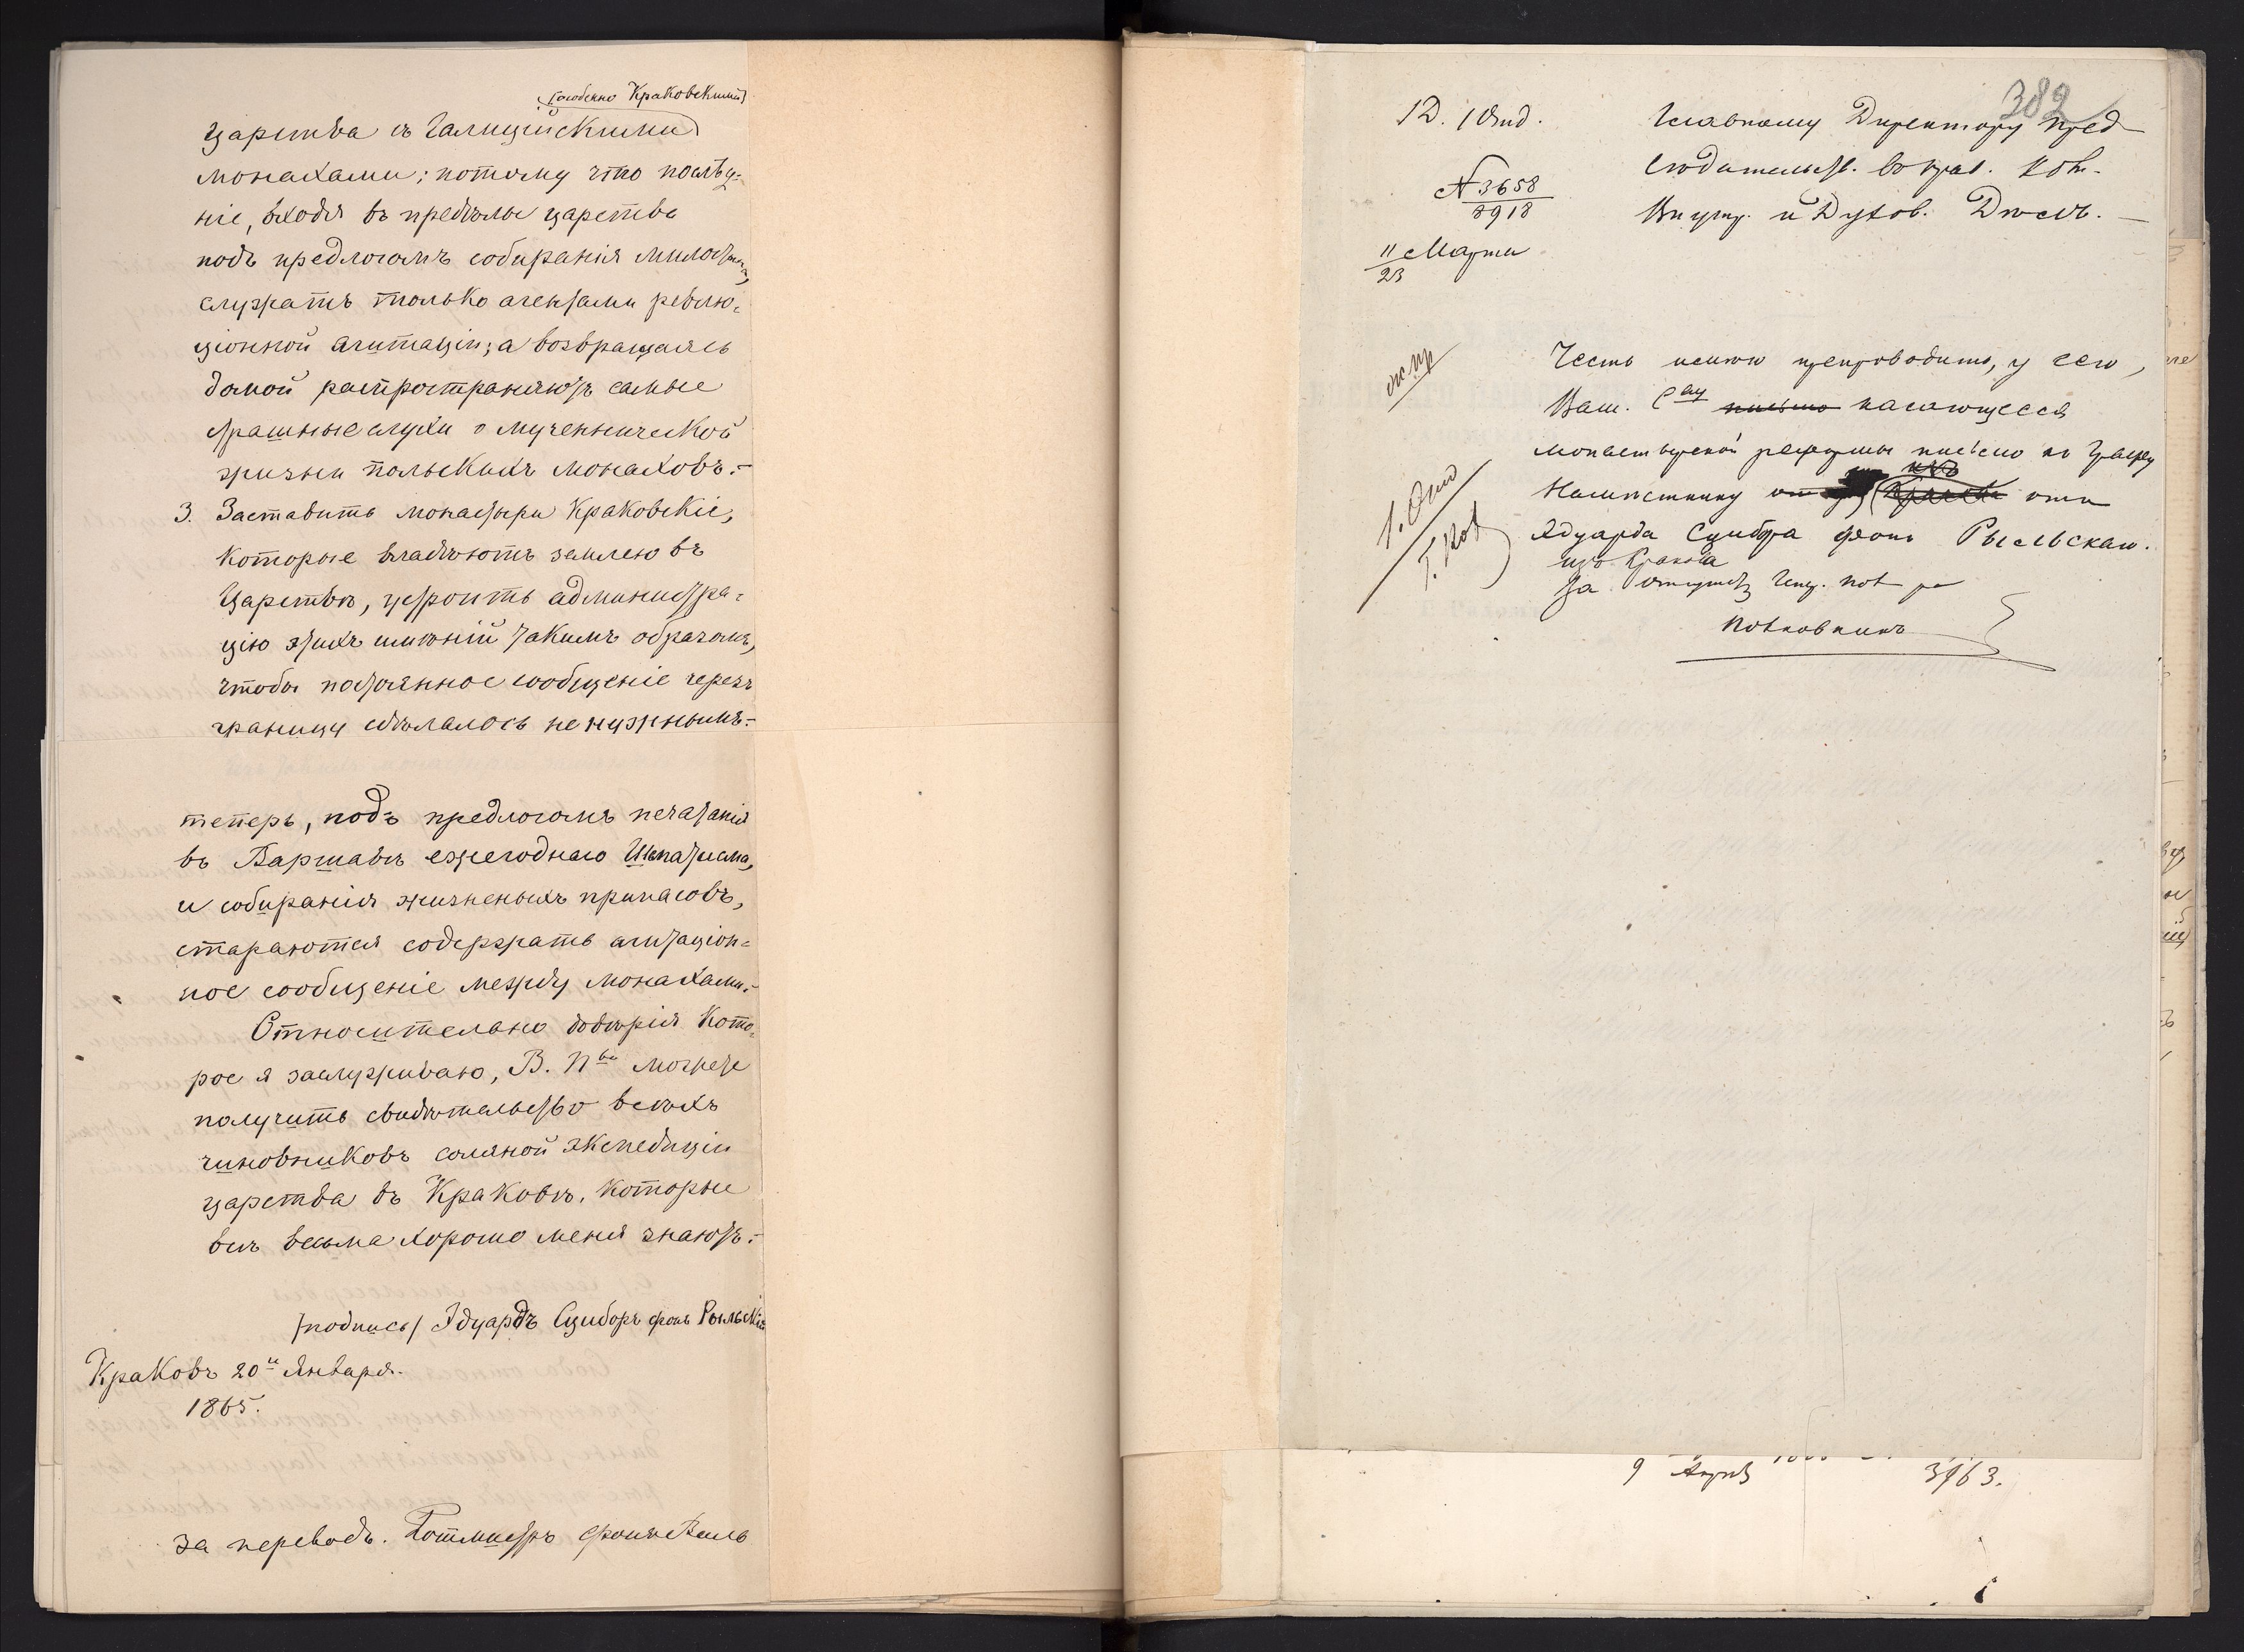 (особенно Краковскими)
царства съ Галицiйскими
монахами; потому что послѣд-
нiе, входя въ предѣлы царства
подъ предлогомъ собиранiя милостыни,
служатъ только агентами револю-
цiонной агитацiи; а возвращаясь
домой распространяютъ самые
страшные слухи о мученнической
жизни польскихъ монаховъ.-
3. Заставить монастыри Краковскiе,
которые владѣютъ землею въ
Царствѣ, устроить администра-
цiю этихъ имѣнiй такимъ образомъ,
чтобы постоянное сообщенiе черезъ
границу сдѣлалось не нужнымъ.-
теперь, подъ предлогомъ печатанiя
въ Варшавѣ ежегоднаго Шематисма,
и собиранiя жизненыхъ припасовъ,
стараются содержать агитацiон-
ное сообщенiе между монахами.-
Относительно довѣрiя кото-
рое я заслуживаю, В. П^во можете
получить свидѣтельство всѣхъ
чиновниковъ соляной экспедицiи
царства въ Краковѣ, которые
всѣ весьма хорошо меня знаютъ.-
/подпись/ Эдуардъ Сциборъ фонъ Рыльскiй
Краковъ 20^и Января.
1865.
за переводъ. Ротмистръ фонъ
382
1Д. 1 Отд.
Главному Директору Пред-
сѣдательст. въ Прав. Ком.
№ 3658
8918
Внутр. и Духов. Дѣлъ. —
11 Марта
23
Честь имѣю препроводить, у сего,
Ваш. С^ву письмо касающееся
монастырской реформы письмо къ Графу
Намѣстнику отъ
Эдуарда Сцибора фонъ Рыльскаго.
изъ Кракова
1. Отд
за
Полковникъ
9 Апрѣ
3963.